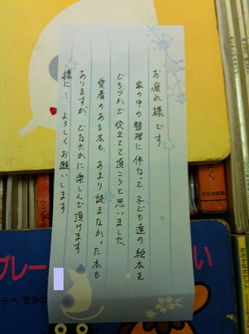 お疲れ様です
家の中の整理に伴なって、子ども達の絵本を
どちらかで役立てて頂こうと思いました。
愛着のある本も、あまり読まなかった本も
ありますが、どなたかに楽しんで頂けます
様に… よろしくお願いします
ブルー
らべ きみか